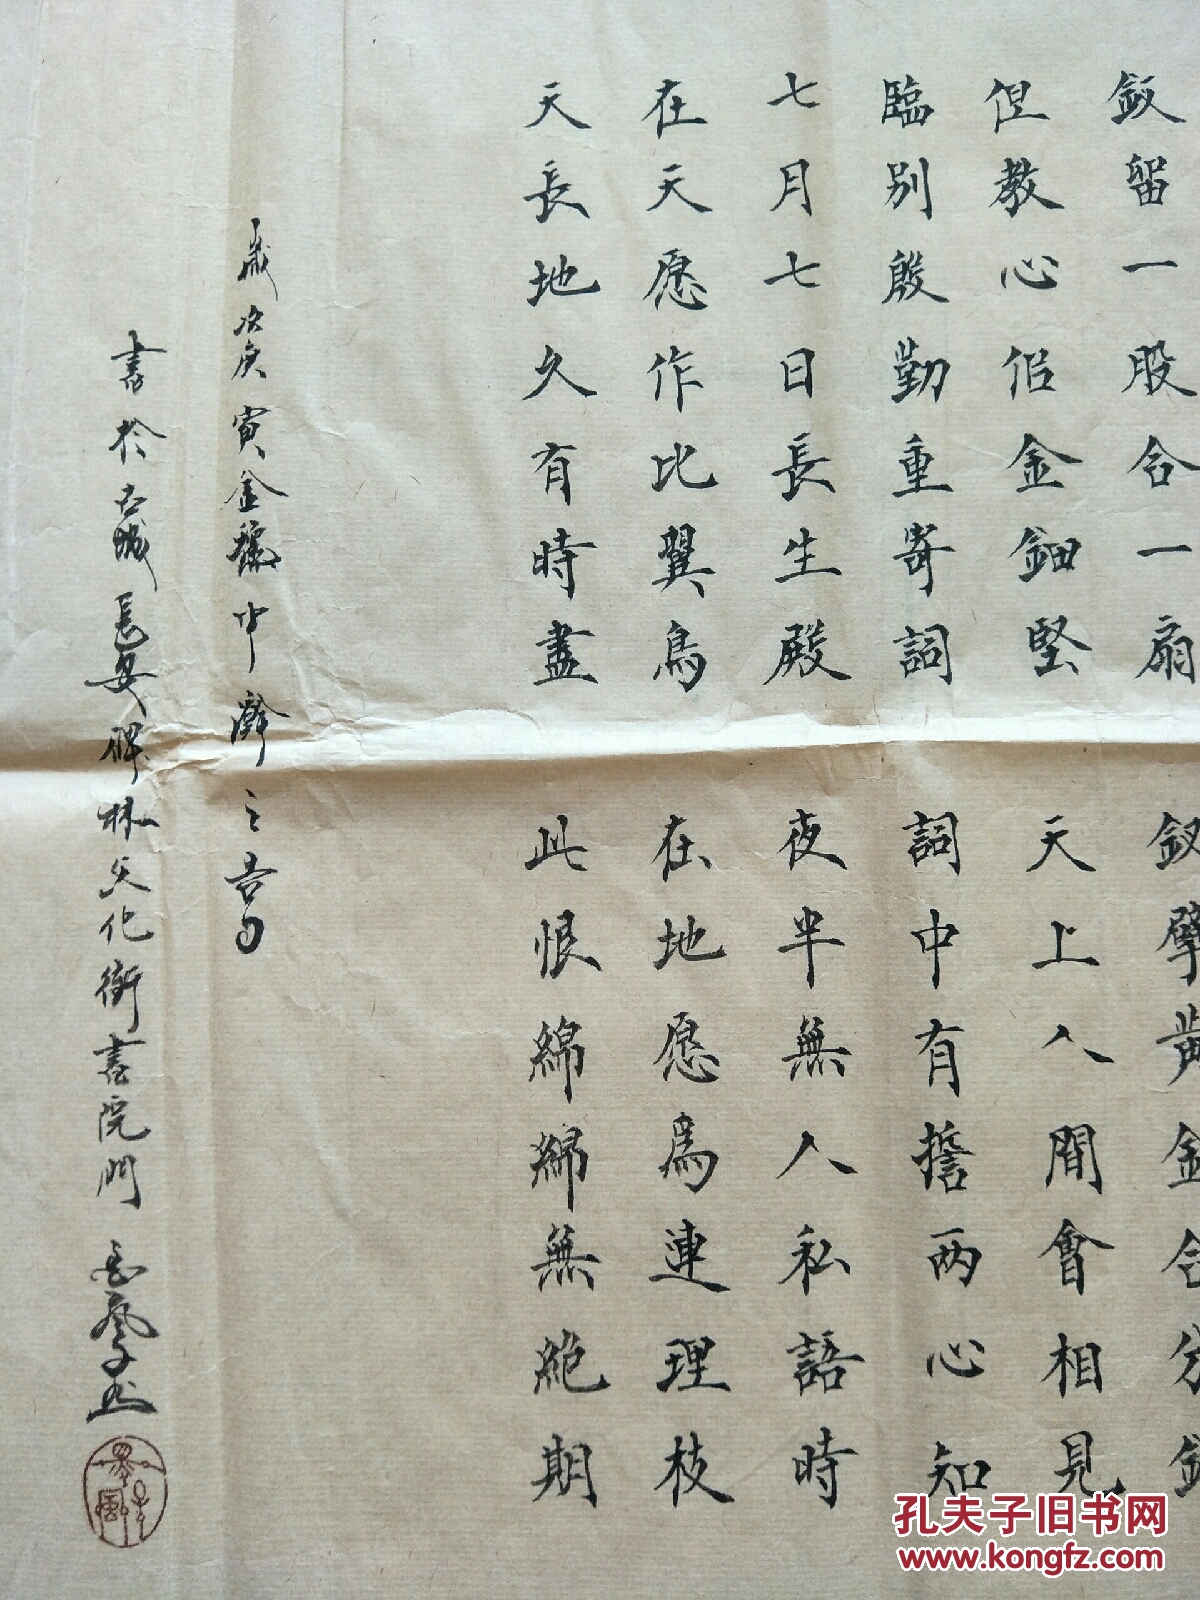 釵留一股合一扇 釵擘黄金合分鈿
但教心佀金鈿堅 天上人間會相見
臨別殷勤重寄詞 詞中有擔两心知
七月七日長生殿 夜半無人私語時
在天愿作比翼鳥 在地愿爲連理枝
天長地久有時盡 此恨綿綿無絶期
歲次庚寅金龝中澣之吉日
書於古城長安碑林文化街書院門
孔夫子旧书网
www.kongfz.com